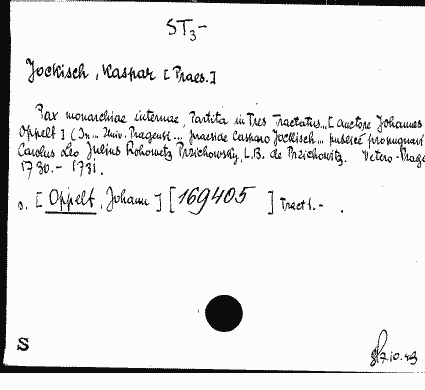 ST3-
Jockisch, Kaspar [Praes.]
Pax monarchiae internae, Partita in Tres Tractatus... [auctore Johannes
Oppelt] (In... Univ. Pragensi... praeside Casparo Jockisch... publice propugnavit
Carolus Leo Julius Rohowetz Przichowsky, L.B. de Przichowitz. Vetero-Praga
1730.- 1731.
s. [Oppelt, Johann] [169405] Tract 1.-
S
7.10.43